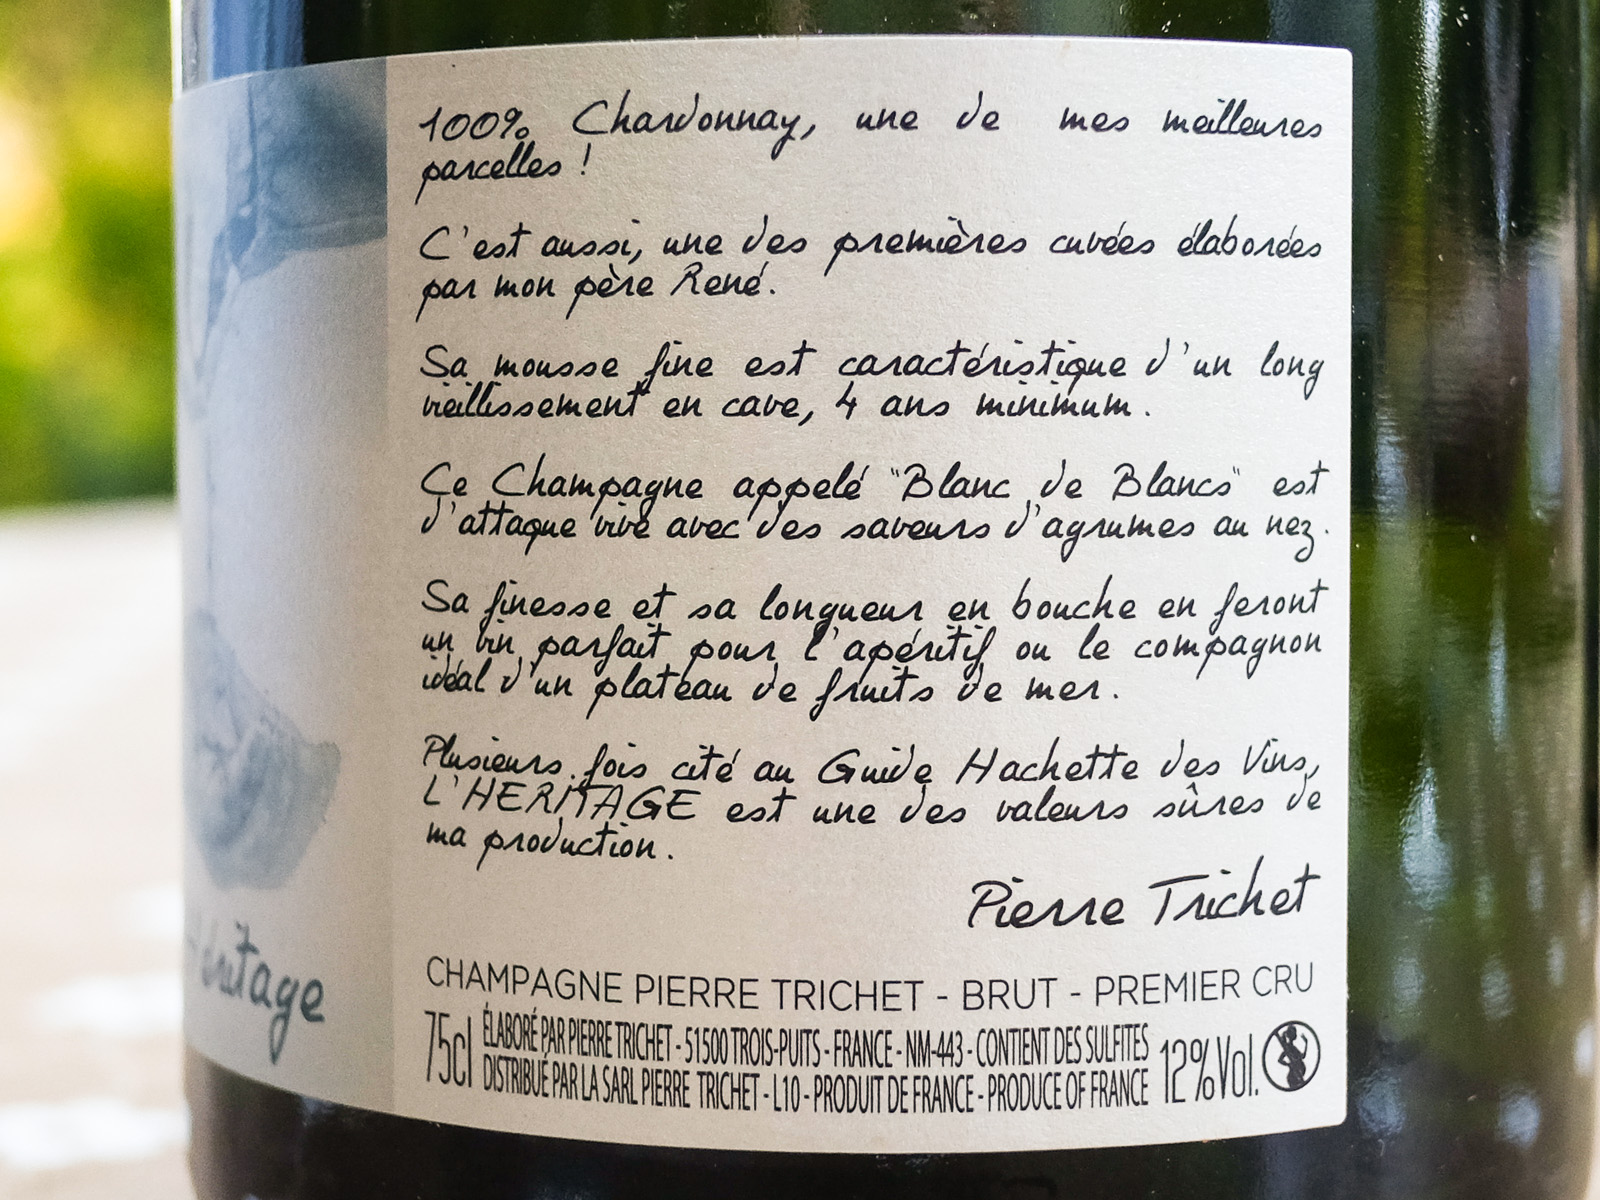 100% Chardonnay, une de mes meilleures
parcelles !
C'est aussi, une des premières cuvées élaborées
par mon père René.
Sa mousse fine est caractéristique d'un long
vieillissement en cave, 4 ans minimum.
Ce Champagne appelé "Blanc de Blancs" est
d'attaque vive avec des saveurs d'agrumes au nez.
Sa finesse et sa longueur en bouche en feront
un vin parfait pour l'apéritif ou le compagnon
idéal d'un plateau de fruits de mer.
Plusieurs fois cité au Guide Hachette des Vins,
L'HERITAGE est une des valeurs sûres de
ma production.
Pierre Trichet
héritage
CHAMPAGNE PIERRE TRICHET - BRUT - PREMIER CRU
75cl
ÉLABORÉ PAR PIERRE TRICHET - 51500 TROIS-PUITS - FRANCE - NM-443 - CONTIENT DES SULFITES
DISTRIBUÉ PAR LA SARL PIERRE TRICHET - L10 - PRODUIT DE FRANCE - PRODUCE OF FRANCE
12%Vol.